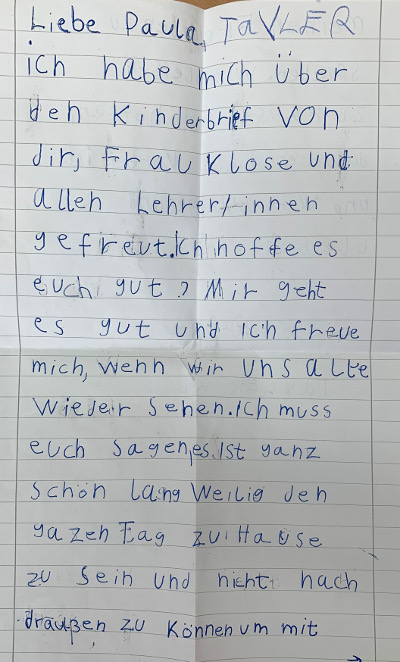 Liebe Paula, TAVLER
ich habe mich über
den Kinderbrief von
dir, Frau Klose und
allen Lehrer/-innen
gefreut. Ich hoffe es
euch gut? Mir geht
es gut und ich freue
mich, wenn wir uns alle
wiedeir sehen. Ich muss
euch sagen, es ist ganz
schön lang weilig den
gazen Tag zu Hause
zu sein und nicht nach
draußen zu können um mit
→